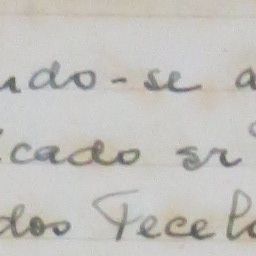 ndo-se a
icado sr
dos Tecel